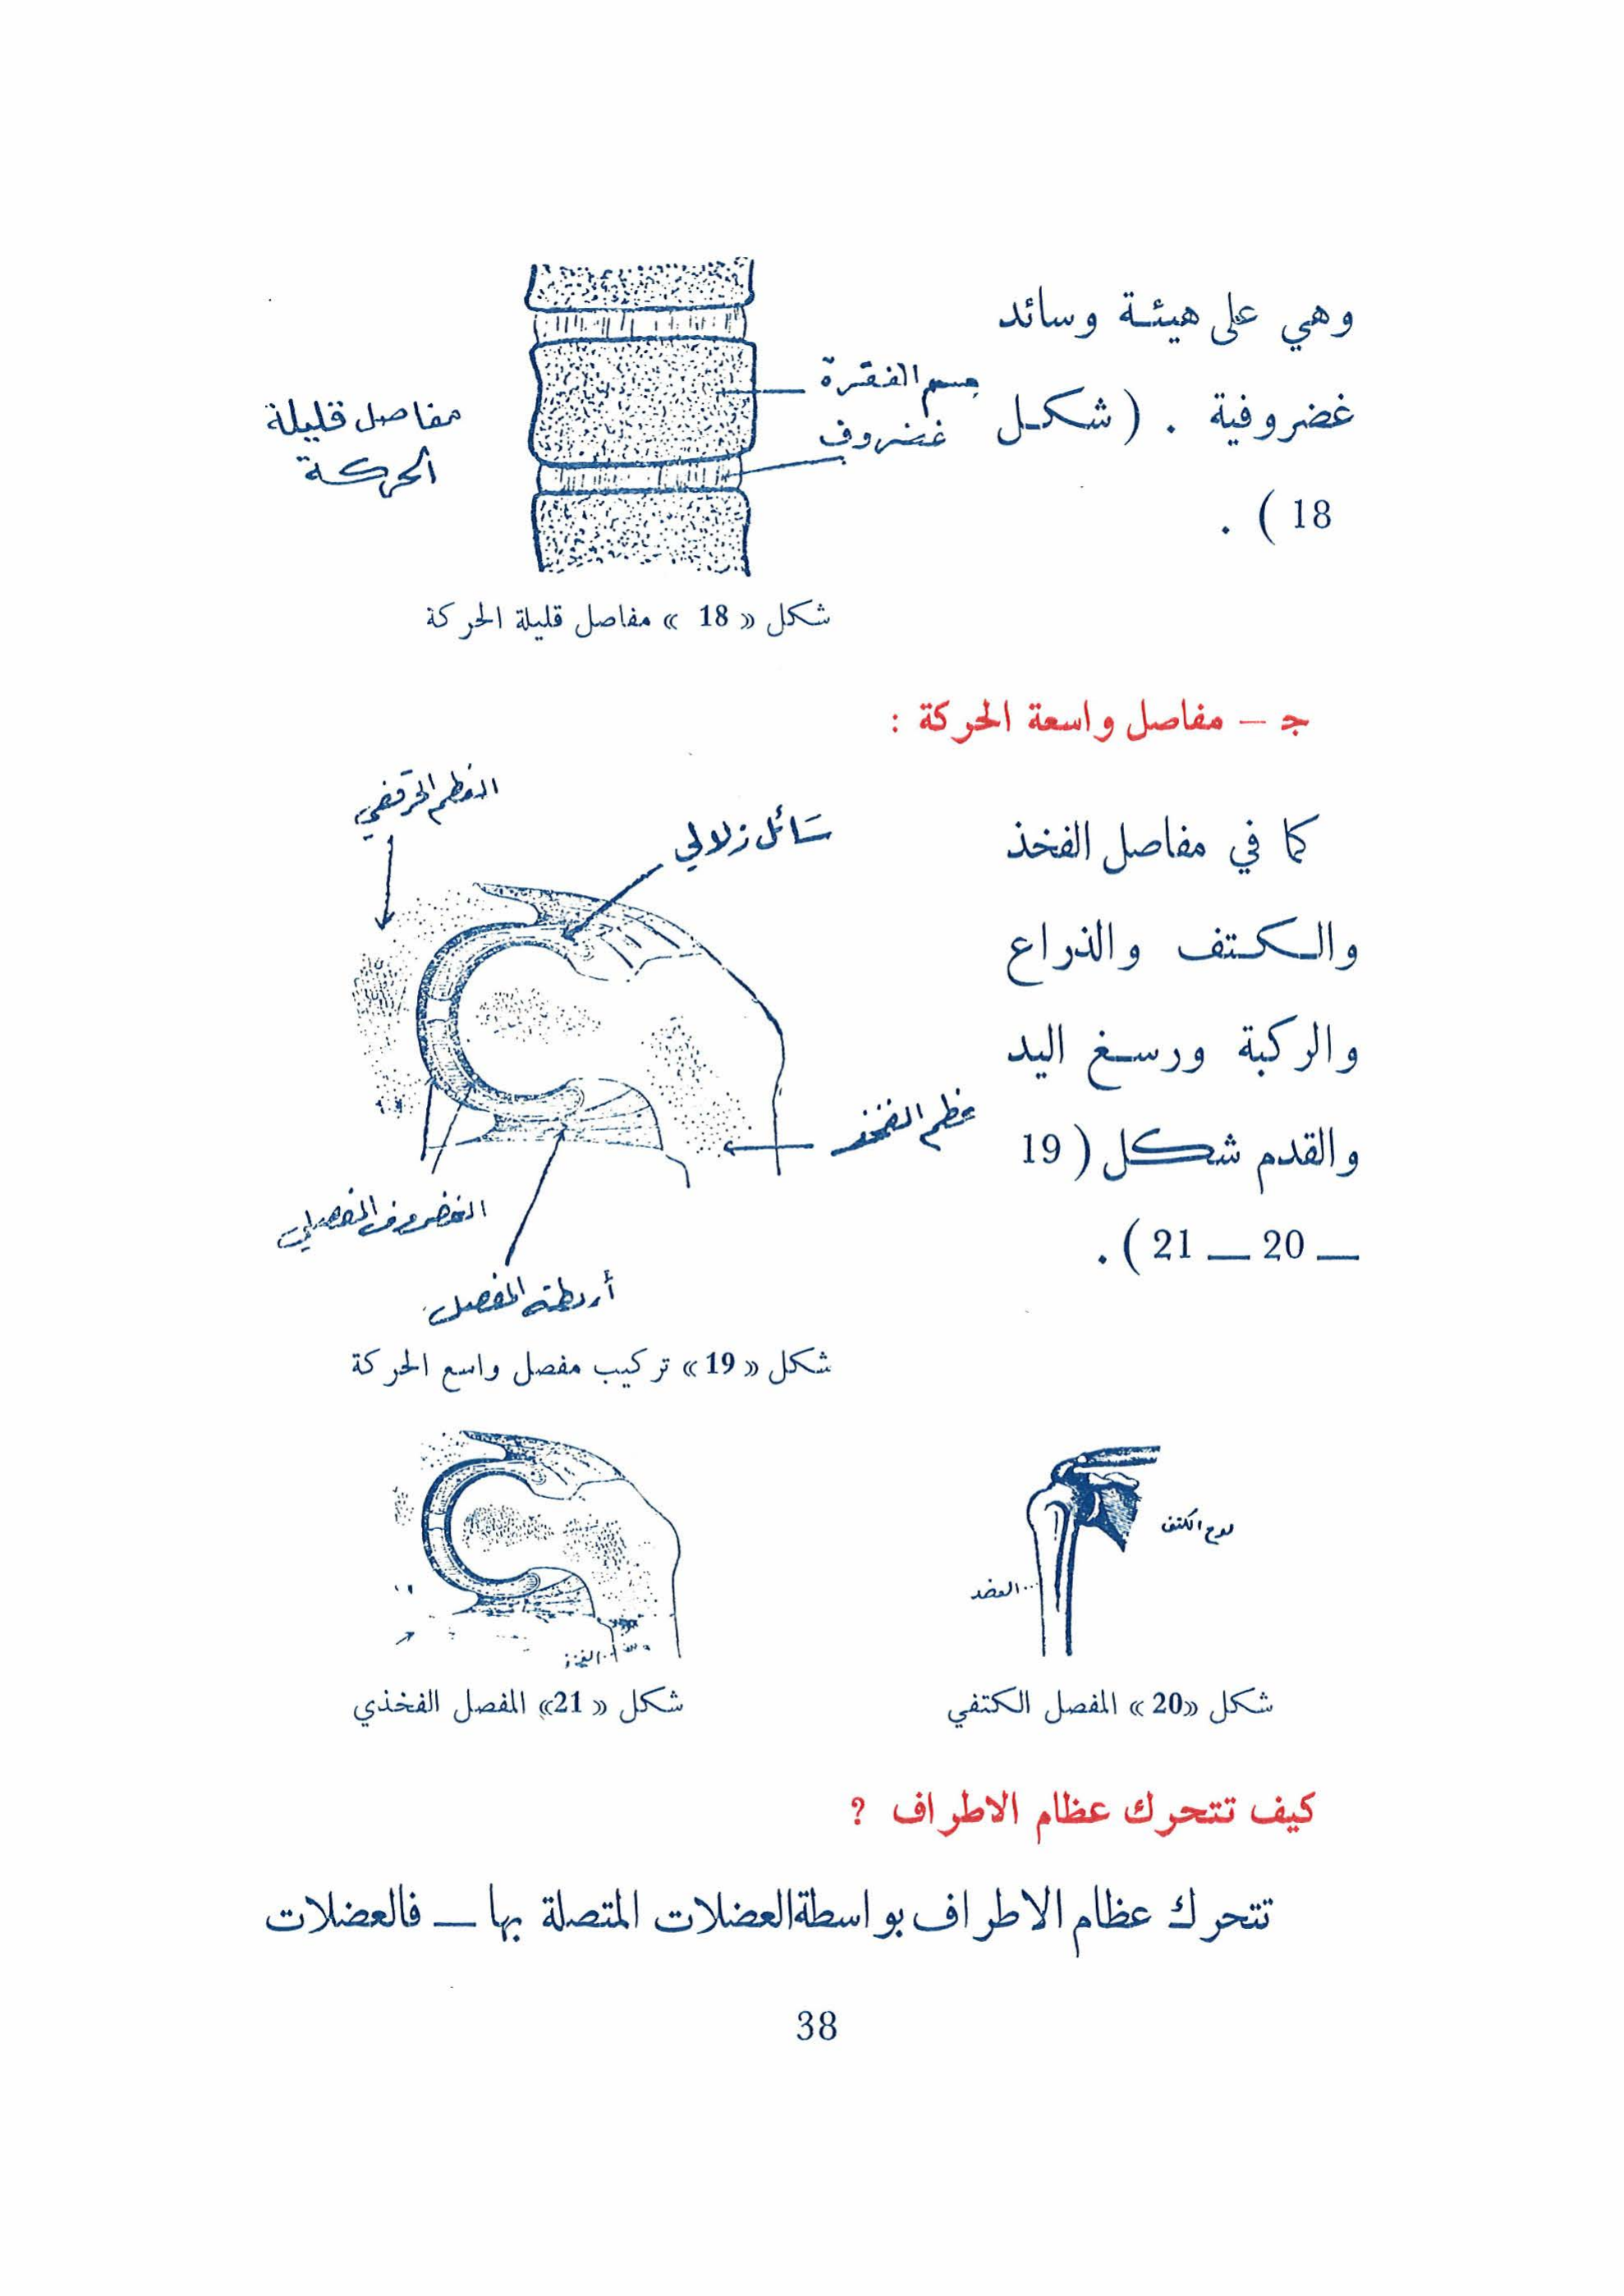 وهي على هيئة وسائد
غضروفية . ( شكل
18 ) .
جسم الفقرة
غضروف
مفاصل قليلة
الحركة
شكل « 18 » مفاصل قليلة الحركة
جـ – مفاصل واسعة الحركة :
كما في مفاصل الفخذ
والكتف والذراع
والركبة ورسغ اليد
والقدم شكل ( 19
— 20 — 21 ) .
العظم الحرقفي
سائل زلالي
عظم الفخذ
الغضروف المفصلي
أربطة المفصل
شكل « 19 » تركيب مفصل واسع الحركة
لوح الكتف
العضد
شكل «20 » المفصل الكتفي
شكل « 21» المفصل الفخذي
كيف تتحرك عظام الاطراف ?
تتحرك عظام الاطراف بواسطة العضلات المتصلة بها — فالعضلات
38